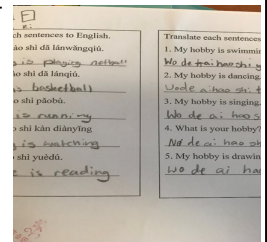 ch sentences to English.
ào shì dǎ lánwǎngqiú.
is playing netball
ào shì dǎ lánqiú.
is basketball
o shì pǎobù.
is running
o shì kàn diànyǐng
is watching
shì yuèdú.
is reading
Translate each sentences
1. My hobby is swimmin
Wo de ai hao shi y
2. My hobby is dancing.
ai hao shi t
3. My hobby is singing.
Wo de ai hao s
4. What is your hobby?
de ai hao sh
5. My hobby is drawin
wo de ai hao